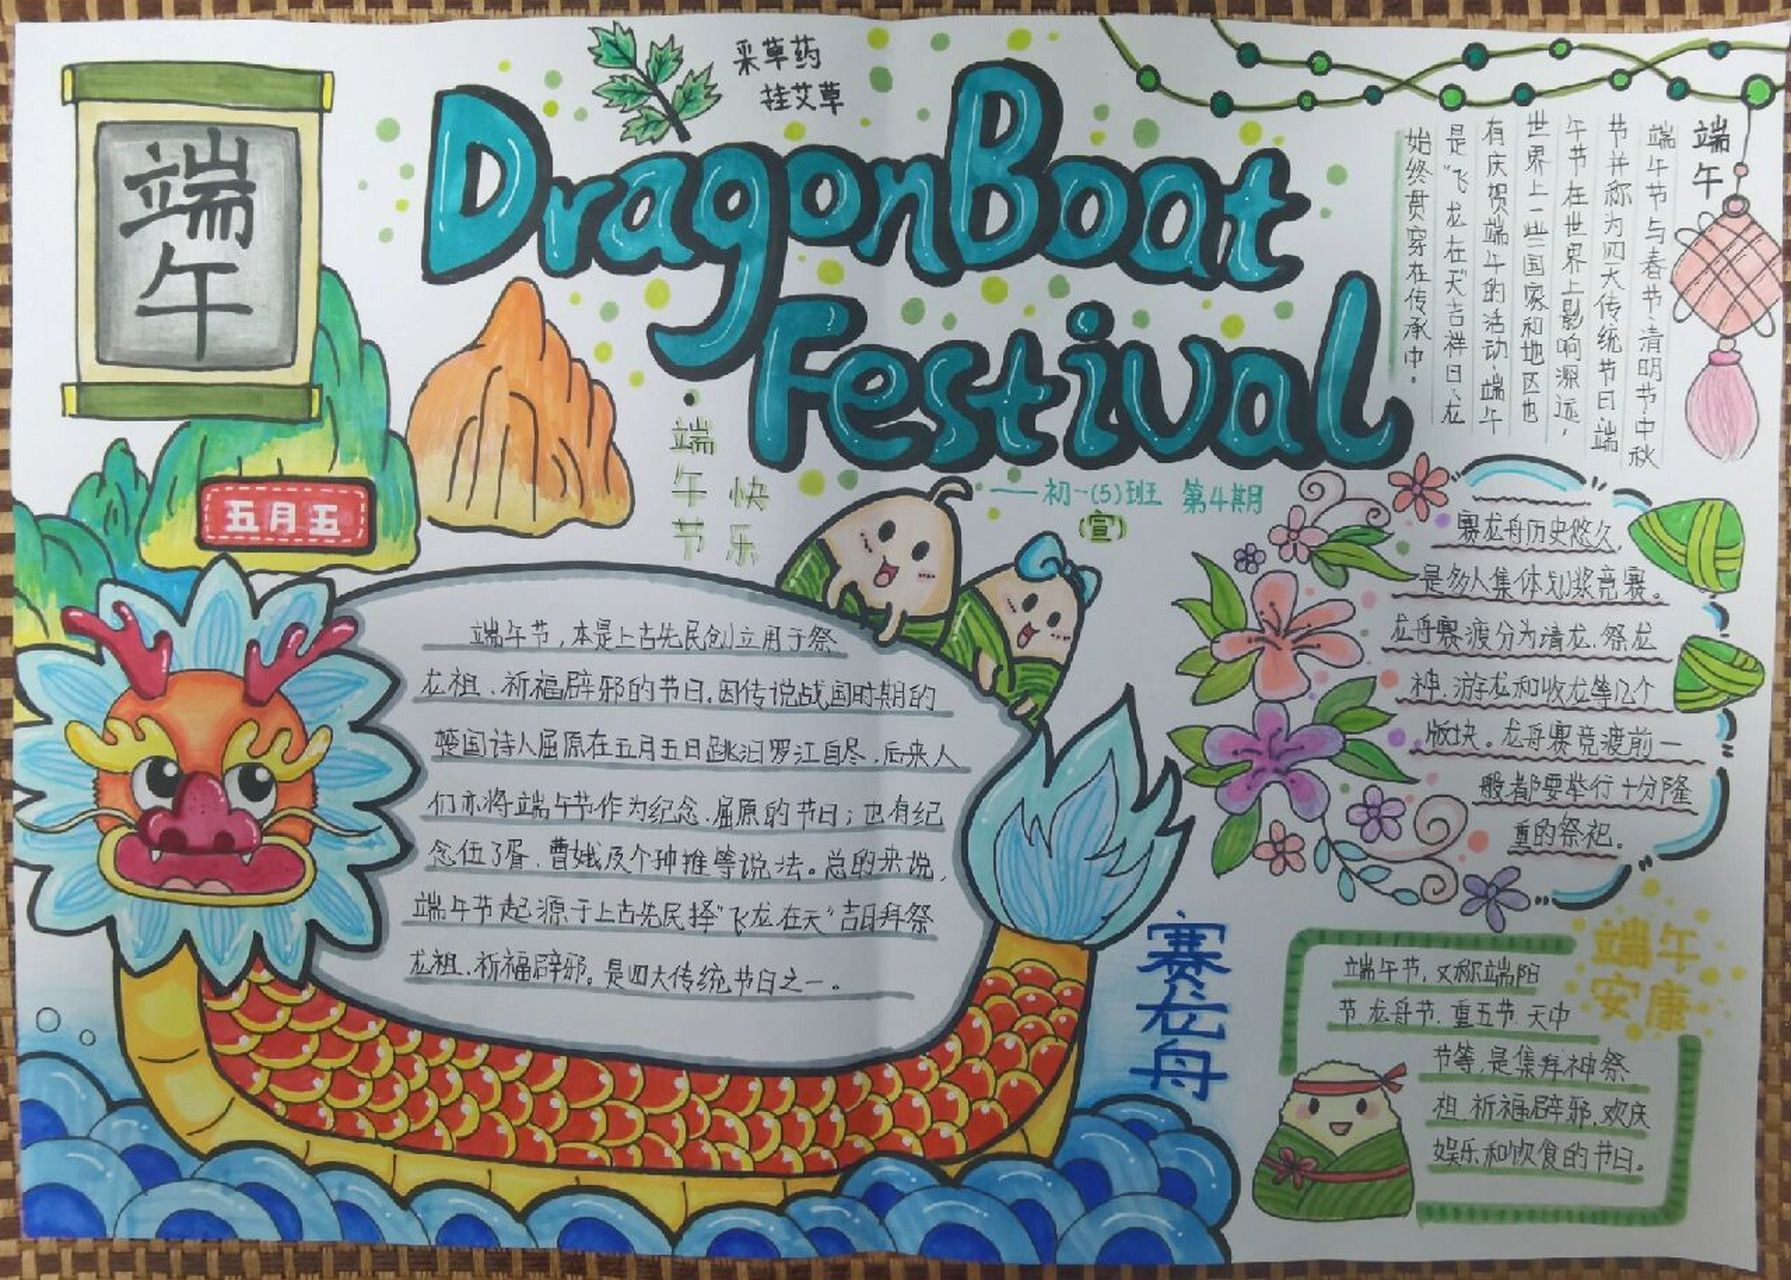 采草药
挂艾草
端午
DragonBoat
Festival
五月五
端午节
快乐
——初一(5)班 第4期
(宣)
端午
端午节与春节、清明节、中秋
节并称为四大传统节日端
午节在世界上影响深远,
世界上一些国家和地区也
有庆贺端午的活动、端午
是“飞龙在天”吉祥日、龙
始终贯穿在传承中。
端午节,本是上古先民创立用于祭
龙祖、祈福辟邪的节日.因传说战国时期的
楚国诗人屈原在五月五日跳汨罗江自尽,后来人
们亦将端午节作为纪念屈原的节日;也有纪
念伍了胥、曹娥及个种推等说法。总的来说,
端午节起源于上古先民择“飞龙在天”吉日拜祭
龙祖、祈福辟邪。是四大传统节日之一。
赛龙舟
赛龙舟历史悠久,
是多人集体划桨竞赛。
龙舟赛渡分为请龙、祭龙
神、游龙和收龙等几个
版块。龙舟赛竞渡前一
般都要举行十分隆
重的祭祀。
端午
安康
端午节,又称端阳
节、龙舟节、重五节、天中
节等,是集拜神祭
祖、祈福辟邪、欢庆
娱乐和饮食的节日。